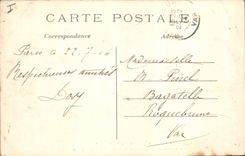 CARTE POSTALE
Correspondance
Paris le 22.7.06
Respectueuses amitiés
Mademoiselle
M.
Bagatelle
Roquebrune
Var
VAR